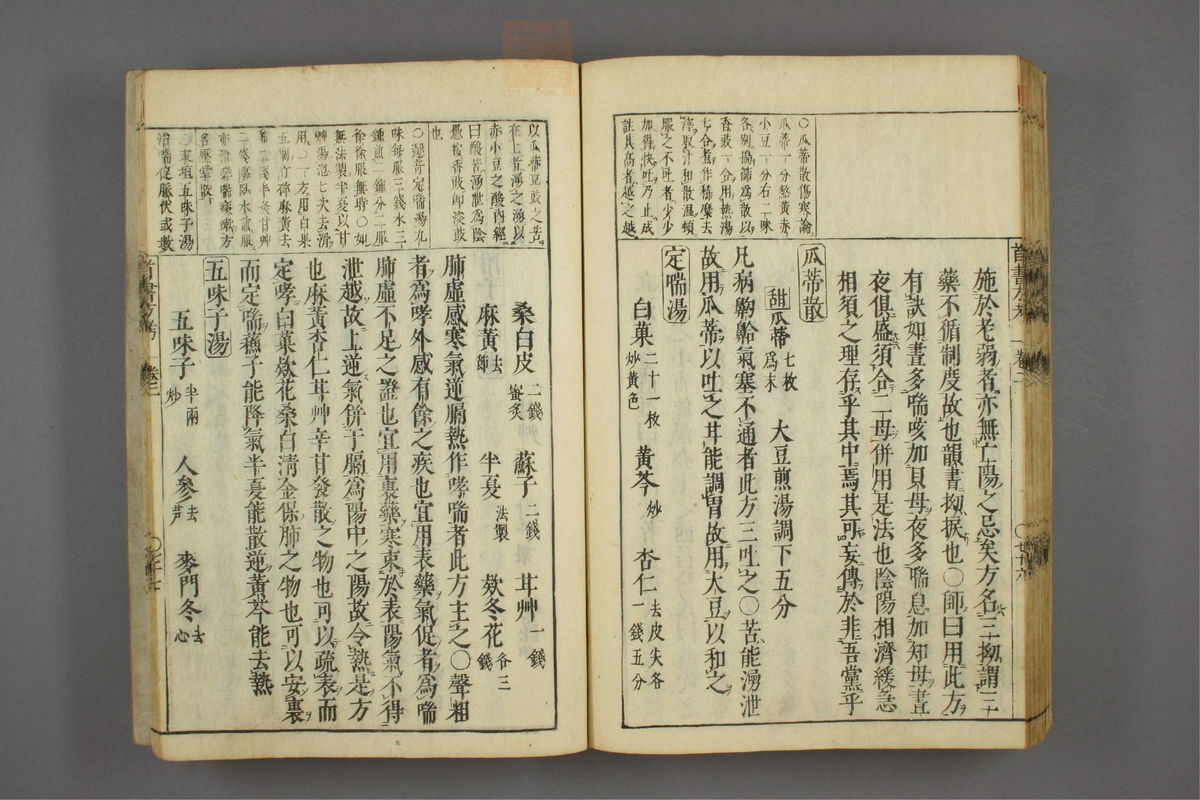 施於老弱者亦無亡陽之忌矣方名三拗謂三
藥不循制度故也韻書拗捩也〇師曰用此方
有訣如晝多喘咳加貝母夜多喘息加知母晝
夜俱盛須令二母併用是法也陰陽相濟緩急
相須之理存乎其中焉其可妄傳於非吾黨乎
瓜蒂散
甜瓜蒂 七枚為末 大豆煎湯調下五分
凡病齁䶎氣塞不通者此方三吐之〇苦能湧泄
故用瓜蒂以吐之甘能調胃故用大豆以和之
定喘湯
白菓 二十一枚炒黃色 黃芩 炒 杏仁 去皮尖各一錢五分
〇瓜蒂散傷寒論
瓜蒂一分熬黃赤
小豆一分右二味
各別搗篩為散以
香豉一合用熱湯
七合煮作稀糜去
滓取汁和散溫頓
服之不吐者少少
加得快吐乃止成
註其高者越之越
以瓜蒂豆豉之苦
在上者湧之湧以
赤小豆之酸內經
曰酸苦湧泄為陰
愚按香豉即淡豉
也
定喘湯
味每服三錢水三
鍾煎二鍾分二服
徐徐服無時〇如
無法製半夏以甘
艸湯泡七次去滑
用〇一方用白果
五個打碎麻黃去
名壓掌散
〇東垣五味子湯
治喘促脈伏或數
桑白皮 二錢蜜炙 蘇子 二錢 甘艸 一錢
麻黃 去節 半夏 法製 欵冬花 各三錢
肺虛感寒氣逆膈熱作哮喘者此方主之〇聲粗
者為哮外感有餘之疾也宜用表藥氣促者為喘
肺虛不足之證也宜用裏藥寒束於表陽氣不得
泄越故上逆氣併于膈為陽中之陽故令熱是方
也麻黃杏仁甘艸辛甘發散之物也可以疏表而
定哮白菓欵花桑白清金保肺之物也可以安裏
而定喘蘇子能降氣半夏能散逆黃芩能去熱
五味子湯
五味子 半兩炒 人參 去芦 麥門冬 去心